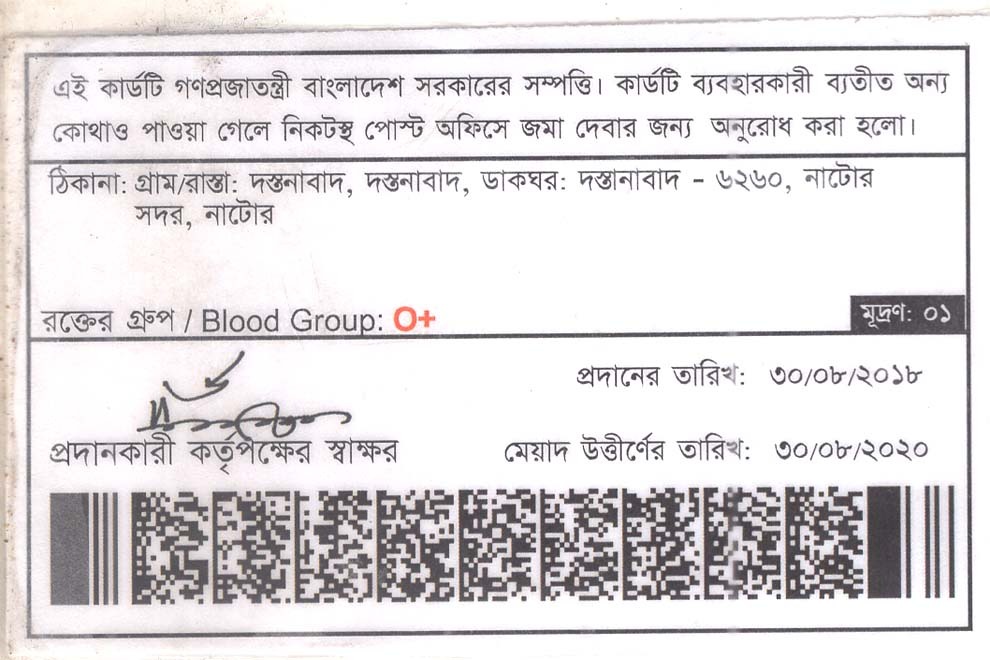 এই কার্ডটি গণপ্রজাতন্ত্রী বাংলাদেশ সরকারের সম্পত্তি। কার্ডটি ব্যবহারকারী ব্যতীত অন্য
কোথাও পাওয়া গেলে নিকটস্থ পোস্ট অফিসে জমা দেবার জন্য অনুরোধ করা হলো।
ঠিকানা: গ্রাম/রাস্তা: দস্তনাবাদ, দস্তনাবাদ, ডাকঘর: দস্তানাবাদ - ৬২৬০, নাটোর
সদর, নাটোর
রক্তের গ্রুপ / Blood Group: O+ মূদ্রণ: ০১
প্রদানের তারিখ: ৩০/০৮/২০১৮
প্রদানকারী কর্তৃপক্ষের স্বাক্ষর মেয়াদ উত্তীর্ণের তারিখ: ৩০/০৮/২০২০